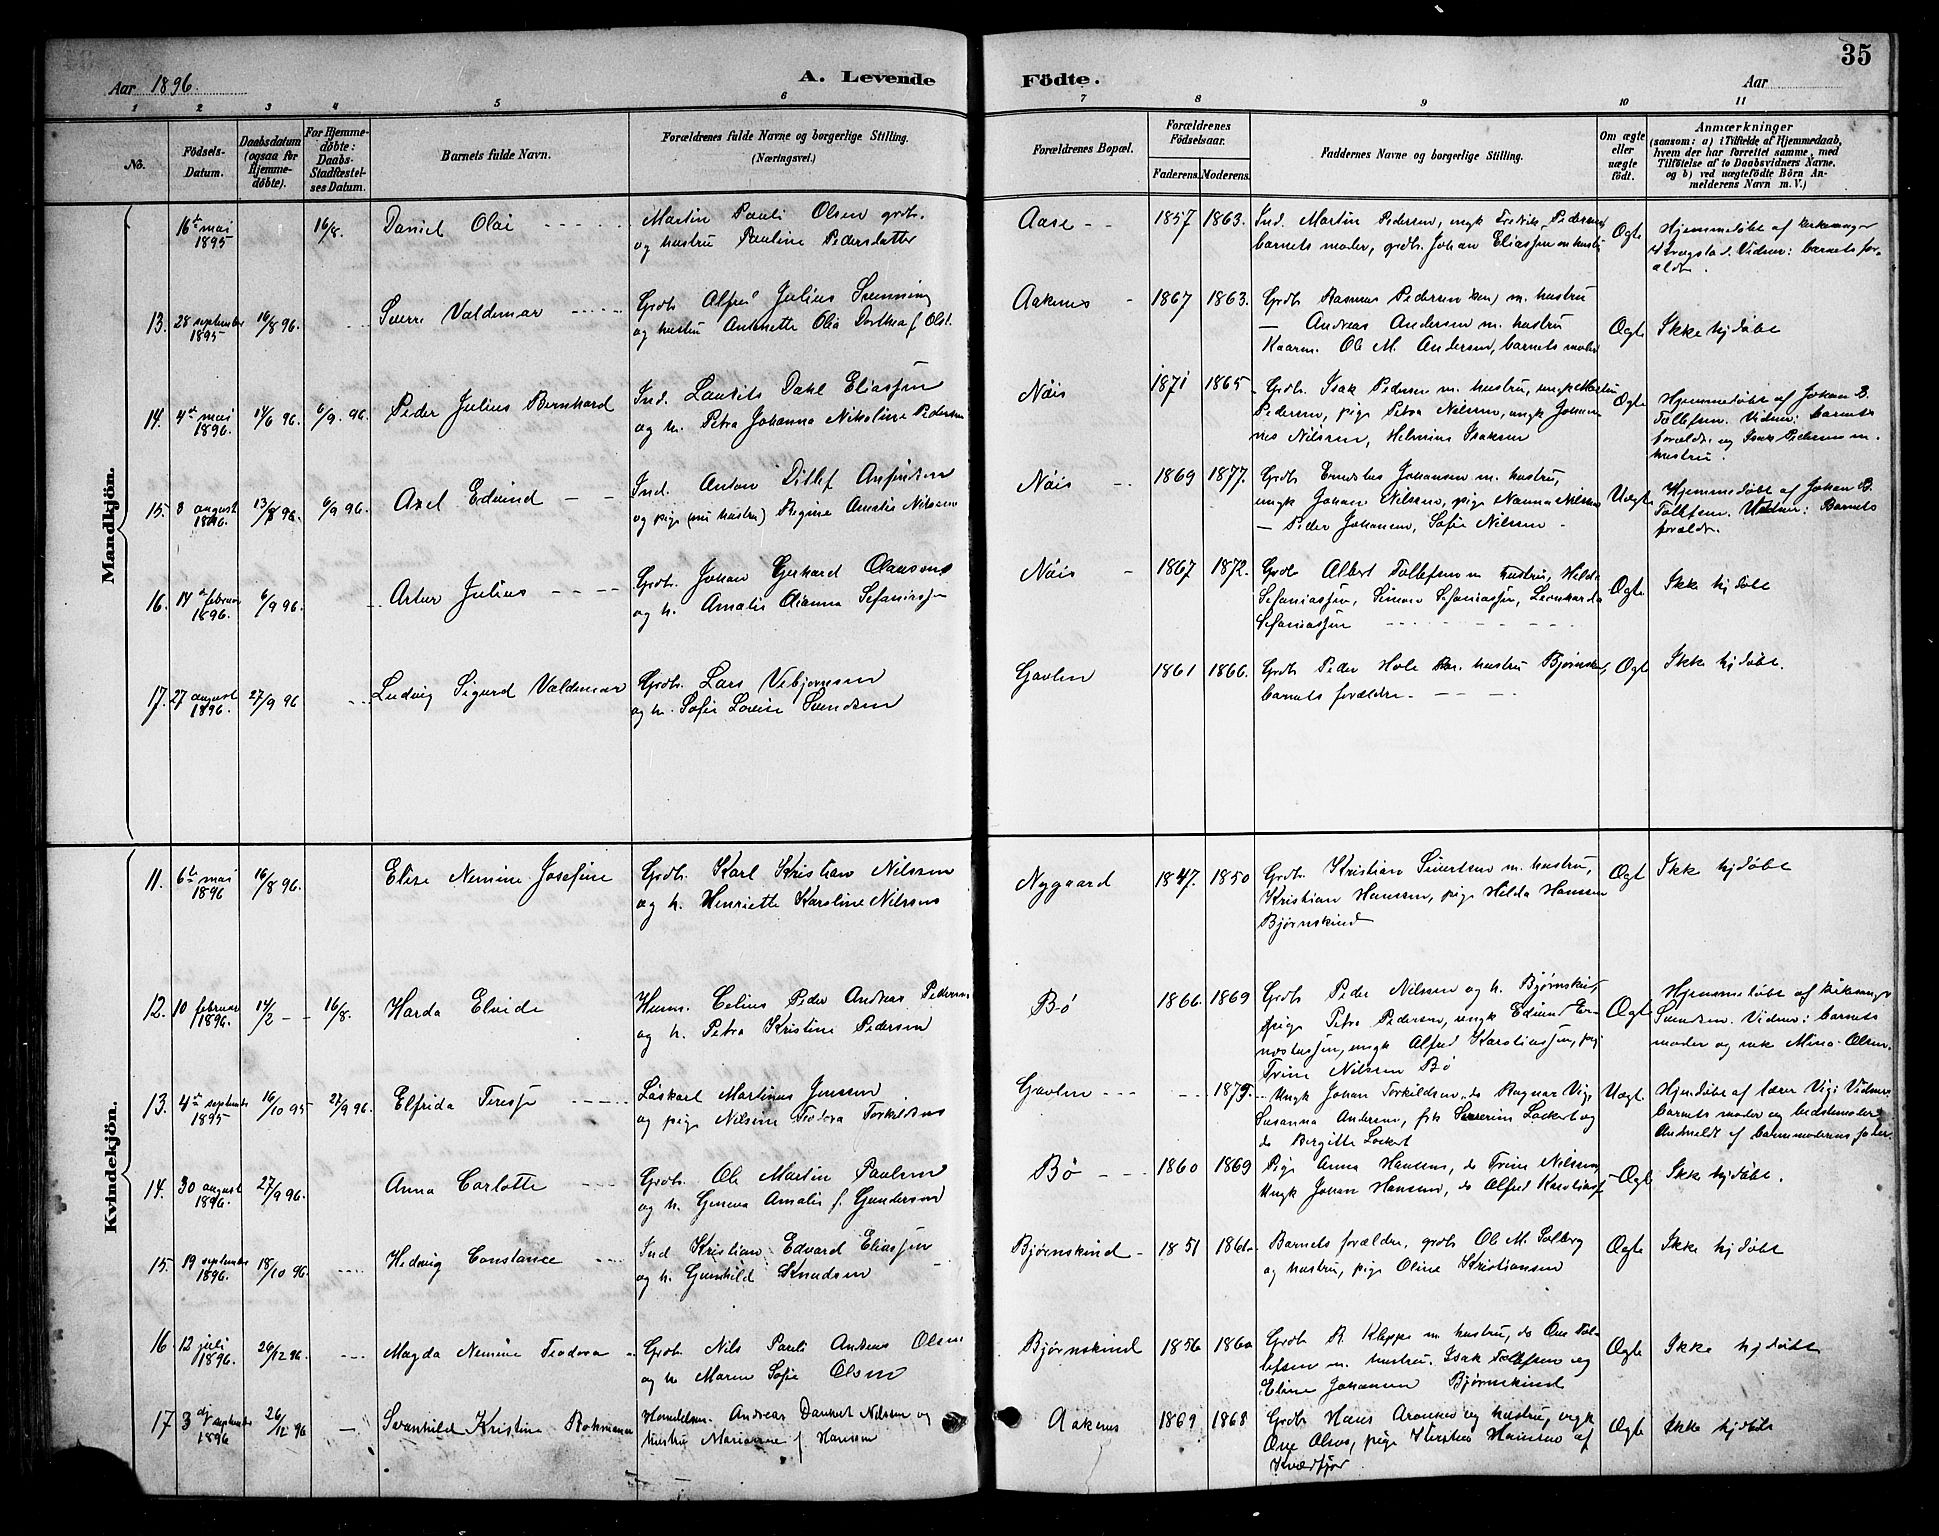 35
Aar 1896.
A. Levende Födte.
Aar
1 2 3 4 5 6 7 8 9 10 11
No.
Födsels-Datum.
Daabsdatum (ogsaa for Hjemme-döbte).
For Hjemme-döbte: Daabs-Stadfæstel-ses Datum.
Barnets fulde Navn.
Forældrenes fulde Navne og borgerlige Stilling. (Næringsvei.)
Forældrenes Bopæl.
Forældrenes Födselsaar.
Faderens. Moderens.
Faddernes Navne og borgerlige Stilling.
Om ægte eller uægte födt.
Anmærkninger (saasom: a) i Tilfælde af Hjemmedaab, hvem der har forrettet samme, med Tilföielse af to Daabsvidners Navne, og b) ved uægtefödte Börn An-melderens Navn m. V.)
Mandkjön.
16de mai 1895 16/8. Daniel Olai
Martin Pauli Olsen grdb.
og hustru Pauline Pedersdatter
Aase 1857 1863.
Ind. Martin Pedersen, ungk Fredrik Pedersen,
barnets moder, grdb. Johan Eliassen m hustru
Ægte
Hjemmedøbt af kirkesanger
Krogstad. Vidner: barnets for-
ældre.
13. 28 september 1895 16/8 96. Sverre Valdemar
Grdb. Alfred Julius Svenning
og hustru Antonette Olia Dorthea f. Olsd.
Aakenes 1867 1863.
Grdb Rasmus Pedersen m. hustru
— Andreas Andersen m. hustru
Kaarm. Ole M. Andersen, barnets moder
Ægte Ikke hjdøbt
14. 4de mai 1896. 14/6 96. 6/9. 96. Peder Julius Bernhard
Ind. Laurits Dahl Eliassen
og h. Petra Johanna Nikoline Pedersen
Nöis 1871 1865
Grdb. Isak Pedersen m. hustru, ungk Martin
Pedersen, pige Petra Nilssen, ungk Johan-
nes Nilssen, Helmine Isaksen
Ægte
Hjemmedøbt af Johan B.
Tollefsen. Vidner: barnets
forældre og Isak Pedersen m.
hustru.
15. 8 august 1896. 13/8 96. 6/9 96. Axel Edvind
Ind. Anton Ditlef Anfindsen
og pige (nu hustru) Regine Amalie Nilssen
Nöis 1869 1877.
Grdb. Johansen m. hustru,
ungk Johan Nilssen, pige Nanna Nilssen
— Peder Johansen, Sofie Nilssen
Uægte
Hjemmedøbt af Johan B.
Tollefsen. Vidner: Barnets
forældre.
16. 14de februar 1896. 6/9 96. Artur Julius
Grdb. Johan Gerhard Olausens
og h. Amalie Dianna Sefaniassen
Nöis 1867 1872.
Grdb Albert Tollefsen m hustru, Hilda
Sefaniassen, Simon Sefaniassen, Leonharda
Sefaniassen
Ægte Ikke hjdøbt
17. 27 august 1896. 27/9 96 Ludvig Sigurd Valdemar
Grdb. Lars Vebjørnsen
og h. Sofie Lovise Svendsen
Gavlen 1861 1866.
Grdb Peder Hole m. hustru Bjørnskind,
barnets forældre.
Ægte Ikke hjdøbt.
Kvindekjön.
11. 6te mai 1896 16/8 96. Elise Nemine Josefine
Grdb. Karl Kristian Nilssen
og h. Henriette Karoline Nilssen
Nygaard 1847. 1850
Grdb. Kristian Sivertsen m. hustru,
Kristian Hanssen, pige Hilda Hanssen
Bjørnskind
Ægt Ikke hjdøbt
12. 10 februar 1896. 14/2 16/8. Harda Elvide
Husm. Celius Peder Andreas Pedersen
og h. Petra Kristine Pedersen
Bø 1866. 1869
Grdb Peder Nilssen og h. Bjørnskind,
pige Petra Pedersen, ungk Edvind Er-
nestussen, ungk Alfred Karoliussen, pige
Trine Nilssen Bø
Ægte
Hjemmedøbt af kirkesanger
Svendsen. Vidner: barnets
moder og enke Mina Olsen.
13. 4de september 1895 16/10 95 27/9 96. Elfrida Terese
Løskarl Martinus Jenssen
og pige Nilsine Teodora Torkildsen
Gavlen 1875.
Ungk Johan Torkildsen, do Ragnar Vig,
Susanna Andersen, frk Severine Lockert og
do Bergitte Lockert
Uægt
Hjemdøbt af lærer Vig. Vidner:
barnets moder og bedstemoder
Anmeldt af barnemoderens fader
14. 30 august 1896. 27/9 96. Anna Carlotte
Grdb. Ole Martin Paulsen
og h. Geneva Amalie f. Gundersen
Bø 1860 1869
Pige Anna Hansen, do Trine Nilssen,
Ungk Johan Hansen, do Alfred Karoliussen
Ægte Ikke hjdøbt.
15. 19 september 1896. 18/10 96. Hedvig Constance
Ind Kristian Edvard Eliassen
og h. Gunhild Knudsen
Bjørnskind 1851
Barnets forældre, grdb Ole M. Solberg
og hustru, pige Oline Kristiansen
Ægte Ikke hjdøbt
16. 12 juli 1896. 26/12 96. Magda Nemine Teodora
Grdb. Nils Pauli Andreas Olsen
og h Maren Sofie Olsen
Bjørnskind 1856 1860
Grdb R. Kleppe m hustru, do Ove Tol-
lefsen m. hustru. Isak Tollefsen og
Eline Johansen Bjørnskind
Ægte Ikke hjdøbt
17 3 september 1896 26/12 96 Svanhild Kristine Rohmann
Handelsm. Andreas Danket Nilssen og
hustru Marianne f. Hanssen
Aakenes 1869 1868
Grdb Hans og hustru, ungk
Ove Olsen, pige Kirstine Hanssen af
Kvædfjor
Ægte Ikke hjdøbt